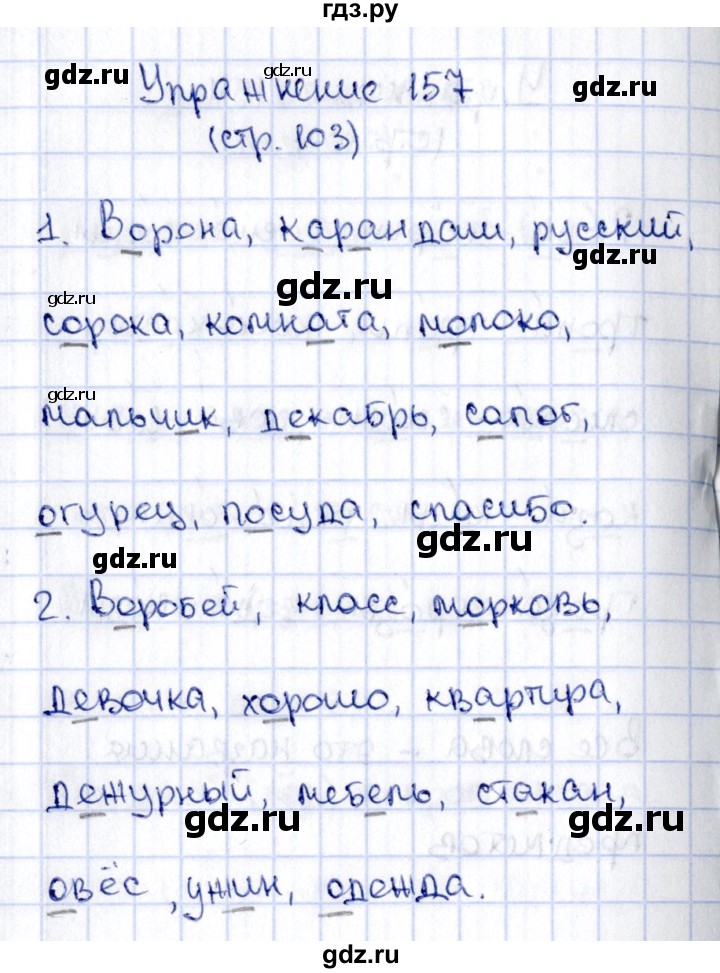 гдз.ру
gdz.ru
gdz.ru
Упражнение 157
gdz.ru
(стр. 103)
1. Ворона, карандаш, русский,
gdz.ru
gdz.ru
gdz.ru
сорока, комната, молоко,
gdz.ru
мальчик, декабрь, сапог,
огурец, посуда, спасибо.
gdz.ru
gdz.ru
2. Воробей, класс, морковь,
девочка, хорошо, квартира,
дежурный, мебель, стакан,
gdz.ru
gdz.ru
овёс, ужин, одежда.
gdz.ru